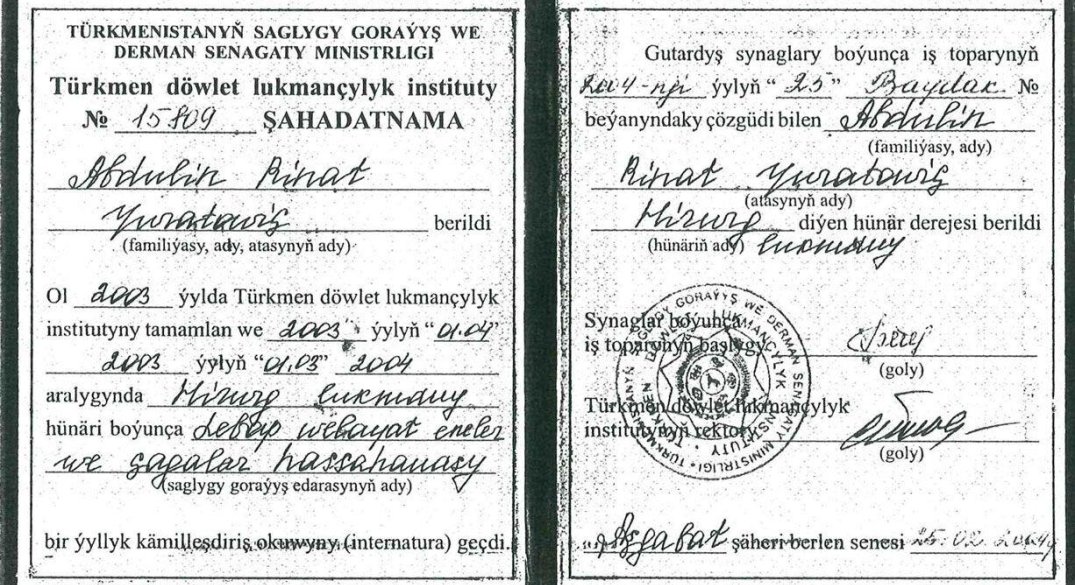 TÜRKMENISTANYŇ SAGLYGY GORAÝYŞ WE
DERMAN SENAGATY MINISTRLIGI
Türkmen döwlet lukmançylyk instituty
№ 15809 ŞAHADATNAMA
Abdulin Rinat
Yuratowiç berildi
(familiýasy, ady, atasynyň ady)
Ol 2003 ýylda Türkmen döwlet lukmançylyk
institutyny tamamlan we 2003 ýylyň “01.04”
2003 ýylyň “01.03” 2004
aralygynda Hirurg lukmany
hünäri boýunça Lebap welaýat eneler
we çagalar hassahanasy
(saglygy goraýyş edarasynyň ady)
bir ýyllyk kämilleşdiriş okuwyny (internatura) geçdi.
Gutardyş synaglary boýunça iş toparynyň
2004-nji ýylyň “25” Baýdak №
beýanyndaky çözgüdi bilen Abdulin
(familiýasy, ady)
Rinat Yuratowiç
(atasynyň ady)
Hirurg diýen hünär derejesi berildi
(hünäriň ady) lukmany
Synaglar boýunça
iş toparynyň başlygy
(goly)
Türkmen döwlet lukmançylyk
institutynyň rektory
(goly)
TÜRKMENISTANYŇ SAGLYGY GORAÝYŞ WE DERMAN SENAGATY MINISTRLIGI
TÜRKMEN DÖWLET LUKMANÇYLYK INSTITUTY
Aşgabat şäheri berlen senesi 25.02.2004